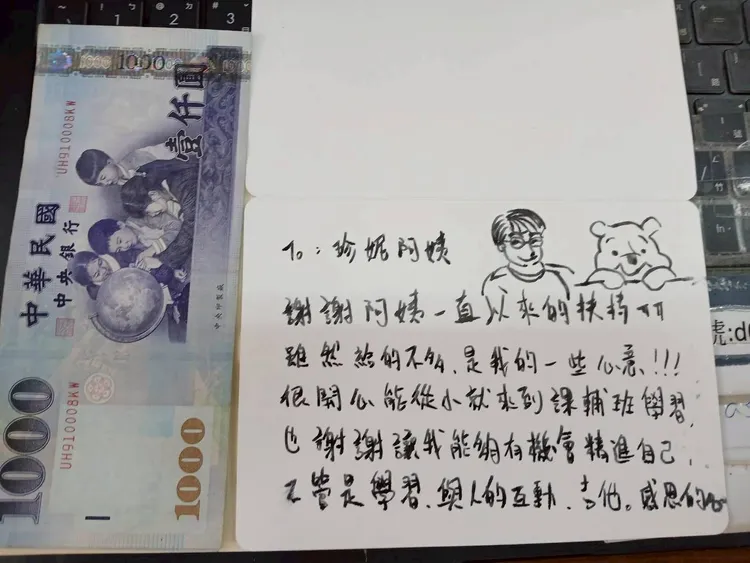 中華民國
中央銀行
壹仟圓
1000
UH910008KW
UH910008KW
中央印製廠
1000
1000
To：珍妮阿姨
謝謝阿姨一直以來的扶持
雖然給的不多，是我的一些心意!!!
很開心能從小就來到課輔班學習，
也謝謝讓我能夠有機會精進自己，
不管是學習、與人的互動、吉他。感恩的心
號:d